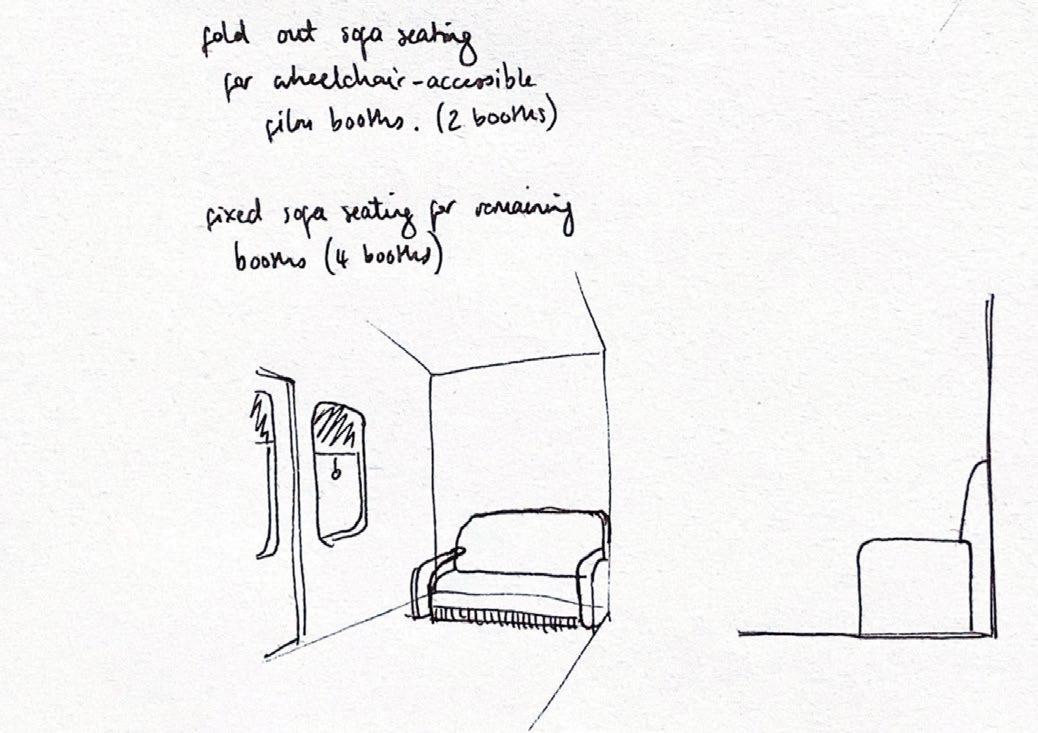 fold out sofa seating
for wheelchair-accessible
film booths. (2 booths)
fixed sofa seating for remaining
booths (4 booths)